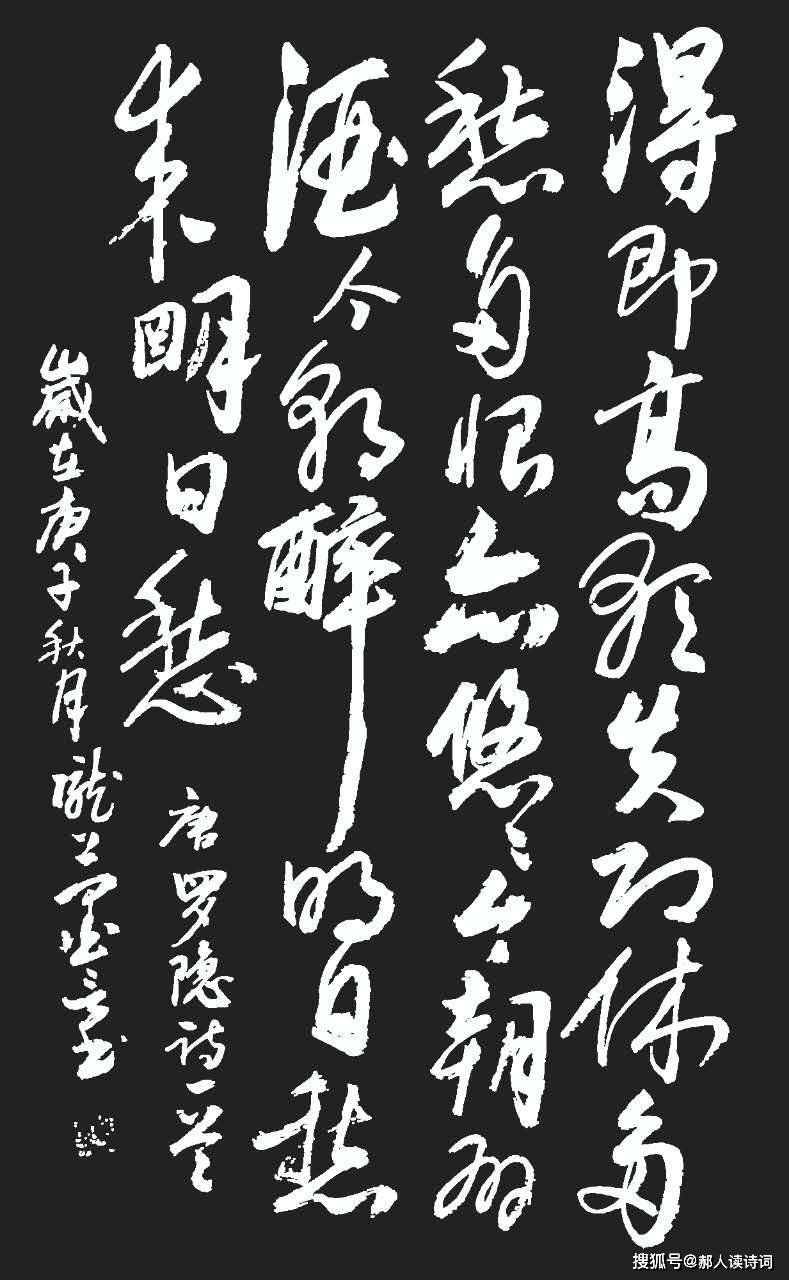 得即高歌失即休多
愁多恨亦悠々今朝有
酒今朝醉明日愁
来明日愁 唐罗隐诗一首
歲在庚子秋月
搜狐号@郝人读诗词